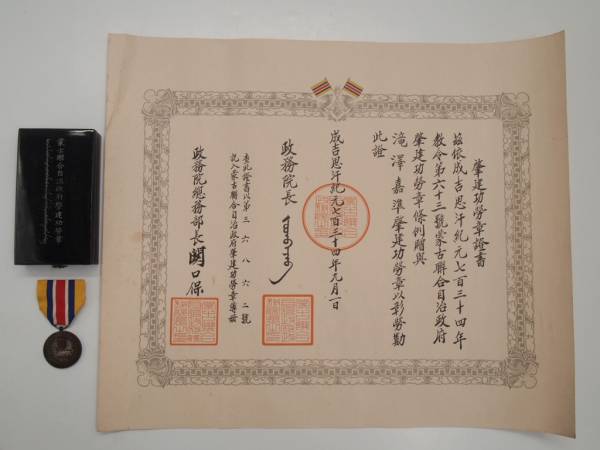 肇建功勞章證書
茲依成吉思汗紀元七百三十四年
教令第六十三號蒙古聯合自治政府
肇建功勞章條例贈與
滝澤嘉準肇建功勞章以彰勞勩
此證
成吉思汗紀元七百三十四年元月一日
政務院長
查此證書以第三六八六二號
記入蒙古聯合自治政府肇建功勞章簿冊
政務院總務部長 關口保
蒙古聯合自治政府肇建功勞章